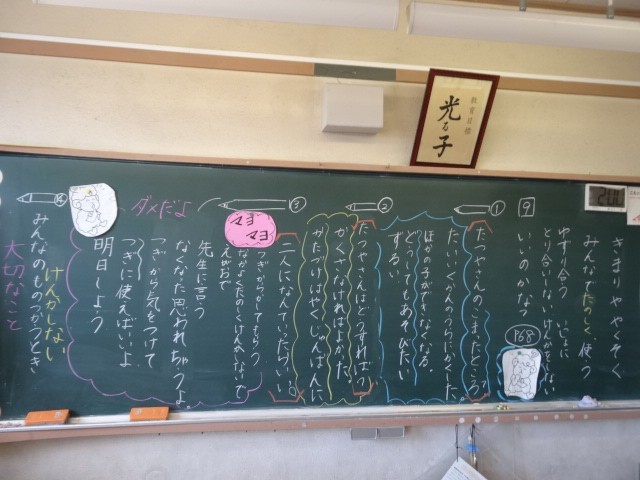 教育目標
光る子
きまりややくそく
みんなでたのしく使う
ゆずり合う
とり合いしない けんかをしない
いいのかな?
9
P68
①
たつやさんのこまったところ?
たいいくかんのうらにかくした。
ほかの子ができなくなる。
どうしてもあそびたい
ずるい
②
たつやさんはどうすれば
かくさなければよかった。
かたづけはやく じゅんばんに
③
二人になんていったらいい
マヨマヨ
つぎからかしてもらう
なかよくたのしくけんかしないで
えがおで
先生に言う
なくなた思われちゃうよ。
つぎから気をつけて
つぎに使えばいいよ
明日しよう
ダメだよ
④
みんなのものつかうとき
けんかしない
大切なこと